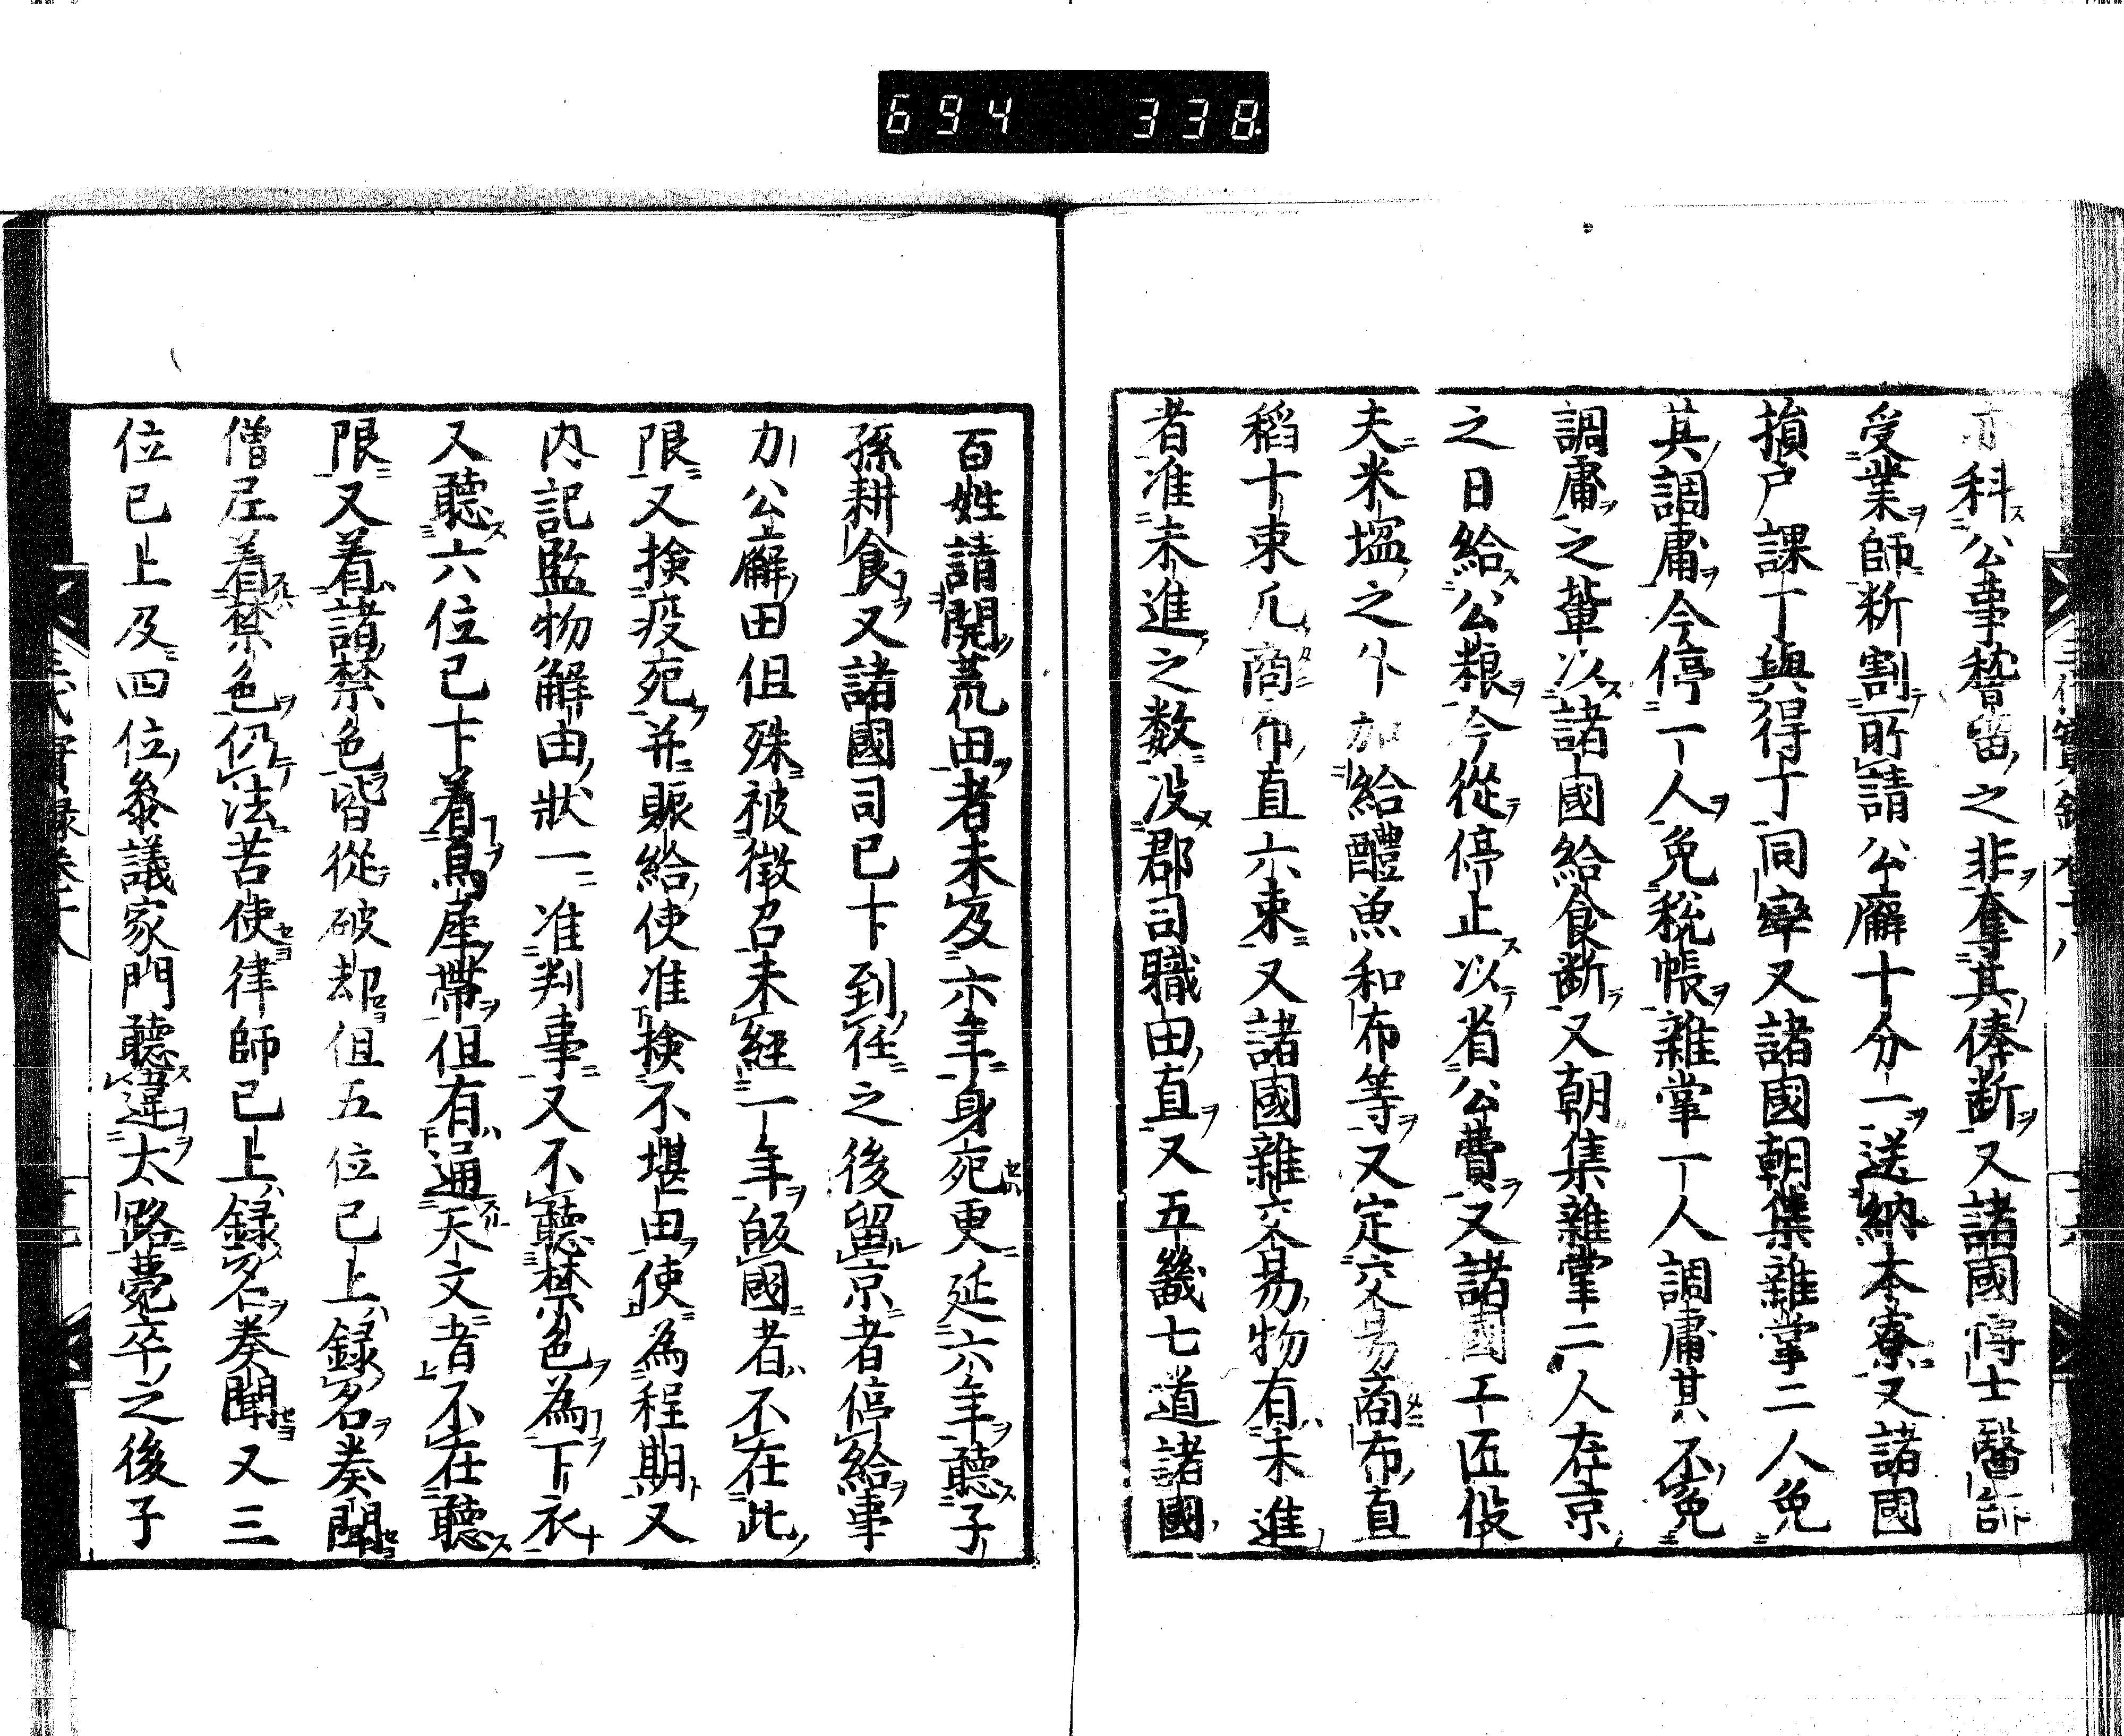 694 338
亦科公事稽留之非奪其俸断又諸國博士醫師
受業師断割所請公廨十分一送納本寮又諸國
損戸課丁與得丁同率又諸國朝集雜掌二人免
其調庸今停一人免税帳雜掌一人調庸其不免
調庸之輩以諸國給食断又朝集雜掌二人在京
之日給公粮今從停止以省公費又諸國工匠役
夫米塩之外加給醴魚和布等又定交易商布直
稻十束凢商布直六束又諸國雜交易物有未進
者准未進之数没郡司職田直又五畿七道諸國
百姓請開荒田者未及六年身死更延六年聽子
孫耕食又諸國司已下到任之後留京者停給事
力公廨田但殊被徴召未經一年皈國者不在此
限又検疫死并賑給使准検不堪田使為程期又
内記監物解由狀一准判事又不聽禁色為下衣
又聽六位已下着烏犀帶但有通天文者不在聽
限又着諸禁色皆從破却但五位已上録名奏聞
僧尼着禁色仍法苦使律師已上録名奏聞又三
位已上及四位參議家門聽違大路薨卒之後子